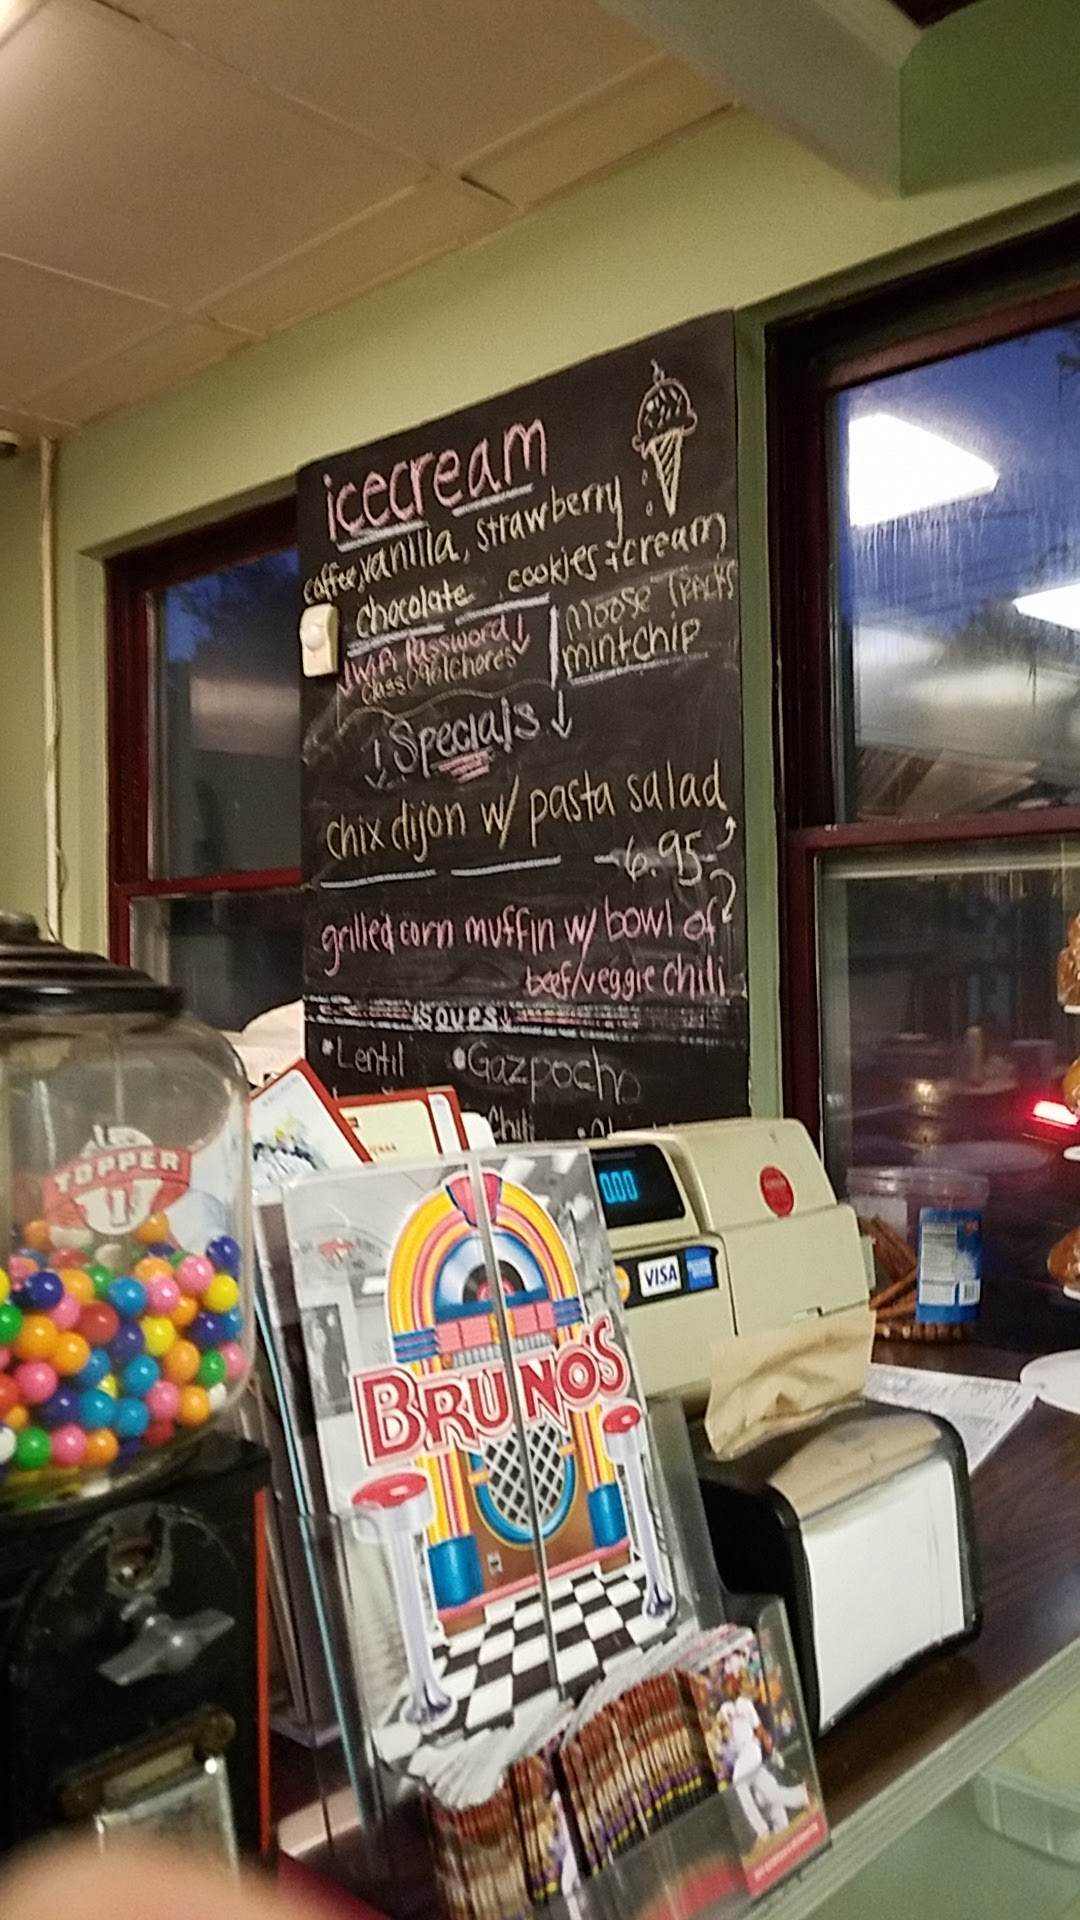 icecream
coffee, vanilla, strawberry
chocolate cookies + cream
Moose Tracks
mintchip
WiFi Password
↓ Specials ↓
chix dijon w/ pasta salad
6.95
grilled corn muffin w/ bowl of
beef/veggie chili
SOUPS
• Lentil • Gazpacho
Chili
TOPPER
0.00
VISA
BRUNO'S